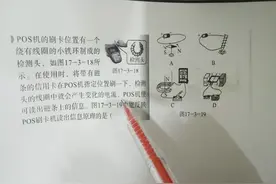 POS机的刷卡位置有一个
绕有线圈的小铁环制成的
检测头
检测头，如图17-3-18所
示，在使用时，将带有磁
条的信用卡在POS机指定位置刷一下，检测
头的线圈中就会产生变化的电流，POS机便
可读出磁条上的信息。图17-3-19中能反映
POS刷卡机读出信息原理的是
图17-3-18
A
B
C
D
图17-3-19